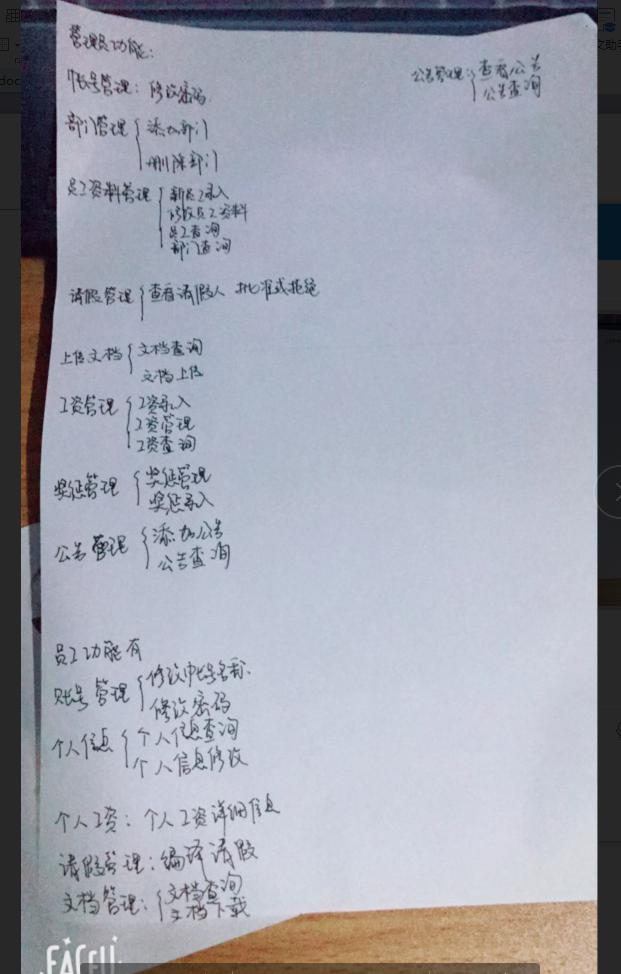 管理员功能:
帐号管理: 修改密码.
部门管理 { 添加部门
删除部门
员工资料管理 { 新员工录入
修改员工资料
员工查询
部门查询
请假管理 { 查看请假人 批准或拒绝
上传文档 { 文档查询
文档上传
工资管理 { 工资录入
工资管理
工资查询
奖惩管理 { 奖惩管理
奖惩录入
公告管理 { 添加公告
公告查询
公告管理: { 查看公告
公告查询
员工功能有
账号管理 { 修改帐号名称.
修改密码
个人信息 { 个人信息查询
个人信息修改
个人工资: 个人工资详细信息
请假管理: 编译请假
文档管理: { 文档查询
文档下载
doc